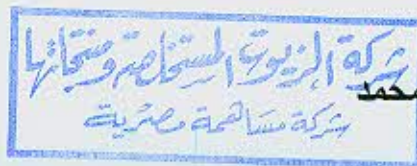 شركة الزيوت المستخلصة ومنتجاتها
محمد
شركة مساهمة مصرية